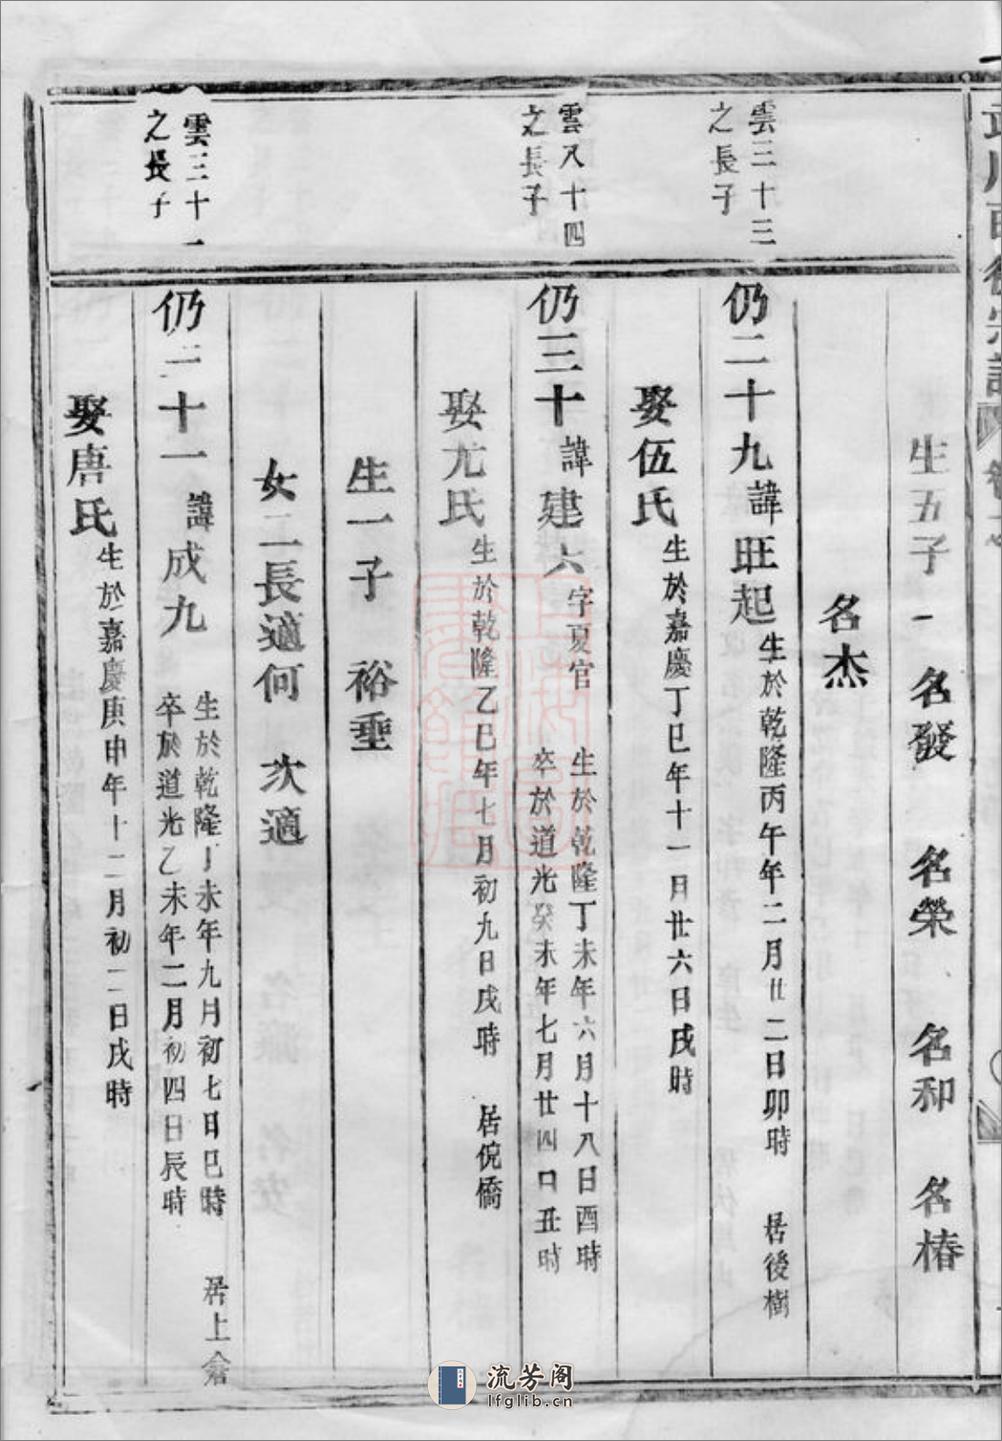 生五子 一名發 名榮 名和 名椿
名杰
雲三十三
之長子
仍二十九 諱旺起 生於乾隆丙午年二月廿二日卯時 居後樹
娶伍氏 生於嘉慶丁巳年十一月廿六日戌時
雲八十四
之長子
仍三十 諱建六 字夏官 生於乾隆丁未年六月十八日酉時
卒於道光癸未年七月廿四口丑時
娶尤氏 生於乾隆乙巳年七月初九日戌時 居倪僑
生一子 裕垂
女二長適何 次適
雲三十一
之長子
仍三十一 諱成九 生於乾隆丁未年九月初七日巳時 居上倉
卒於道光乙未年二月初四日辰時
娶唐氏 生於嘉慶庚申年十二月初二日戌時
流芳阁
lfglib.cn